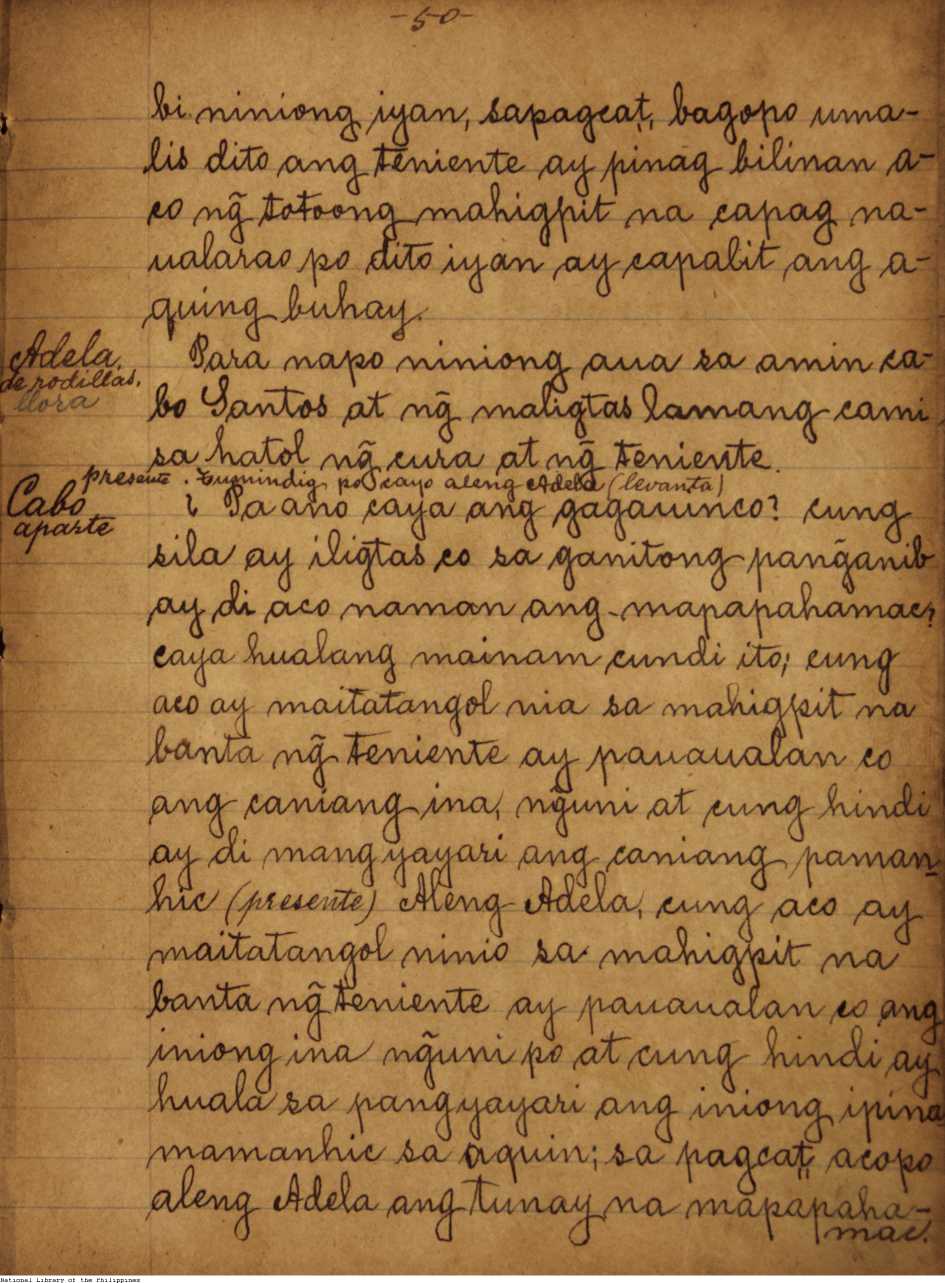 -50-
bi niniong iyan, sapagcat, bagopo uma-
lis dito ang teniente ay pinag bilinan a-
co ng̃ totoong mahigpit na capag na-
ualarao po dito iyan ay capalit ang a-
quing buhay.
Adela,
de rodillas,
llora
Para napo niniong aua sa amin ca-
bo Santos at ng̃ maligtas lamang cami
sa hatol ng̃ cura at ng̃ teniente.
presente. Tumindig po cayo aleng Adela (levanta)
Cabo
aparte
¿ Pa ano caya ang gagauinco? cung
sila ay iligtas co sa ganitong pang̃anib
ay di aco naman ang mapapahamac?
caya hualang mainam cundi ito; cung
aco ay maitatangol nia sa mahigpit na
banta ng̃ teniente ay pauaualan co
ang caniang ina, ng̃uni at cung hindi
ay di mangyayari ang caniang paman-
hic (presente) Aleng Adela, cung aco ay
maitatangol ninio sa mahigpit na
banta ng̃ teniente ay pauaualan co ang
iniong ina ng̃uni po at cung hindi ay
huala sa pangyayari ang iniong ipina
mamanhic sa aquin; sa pagcat, acopo
aleng Adela ang tunay na mapapaha-
mac.
National Library of the Philippines